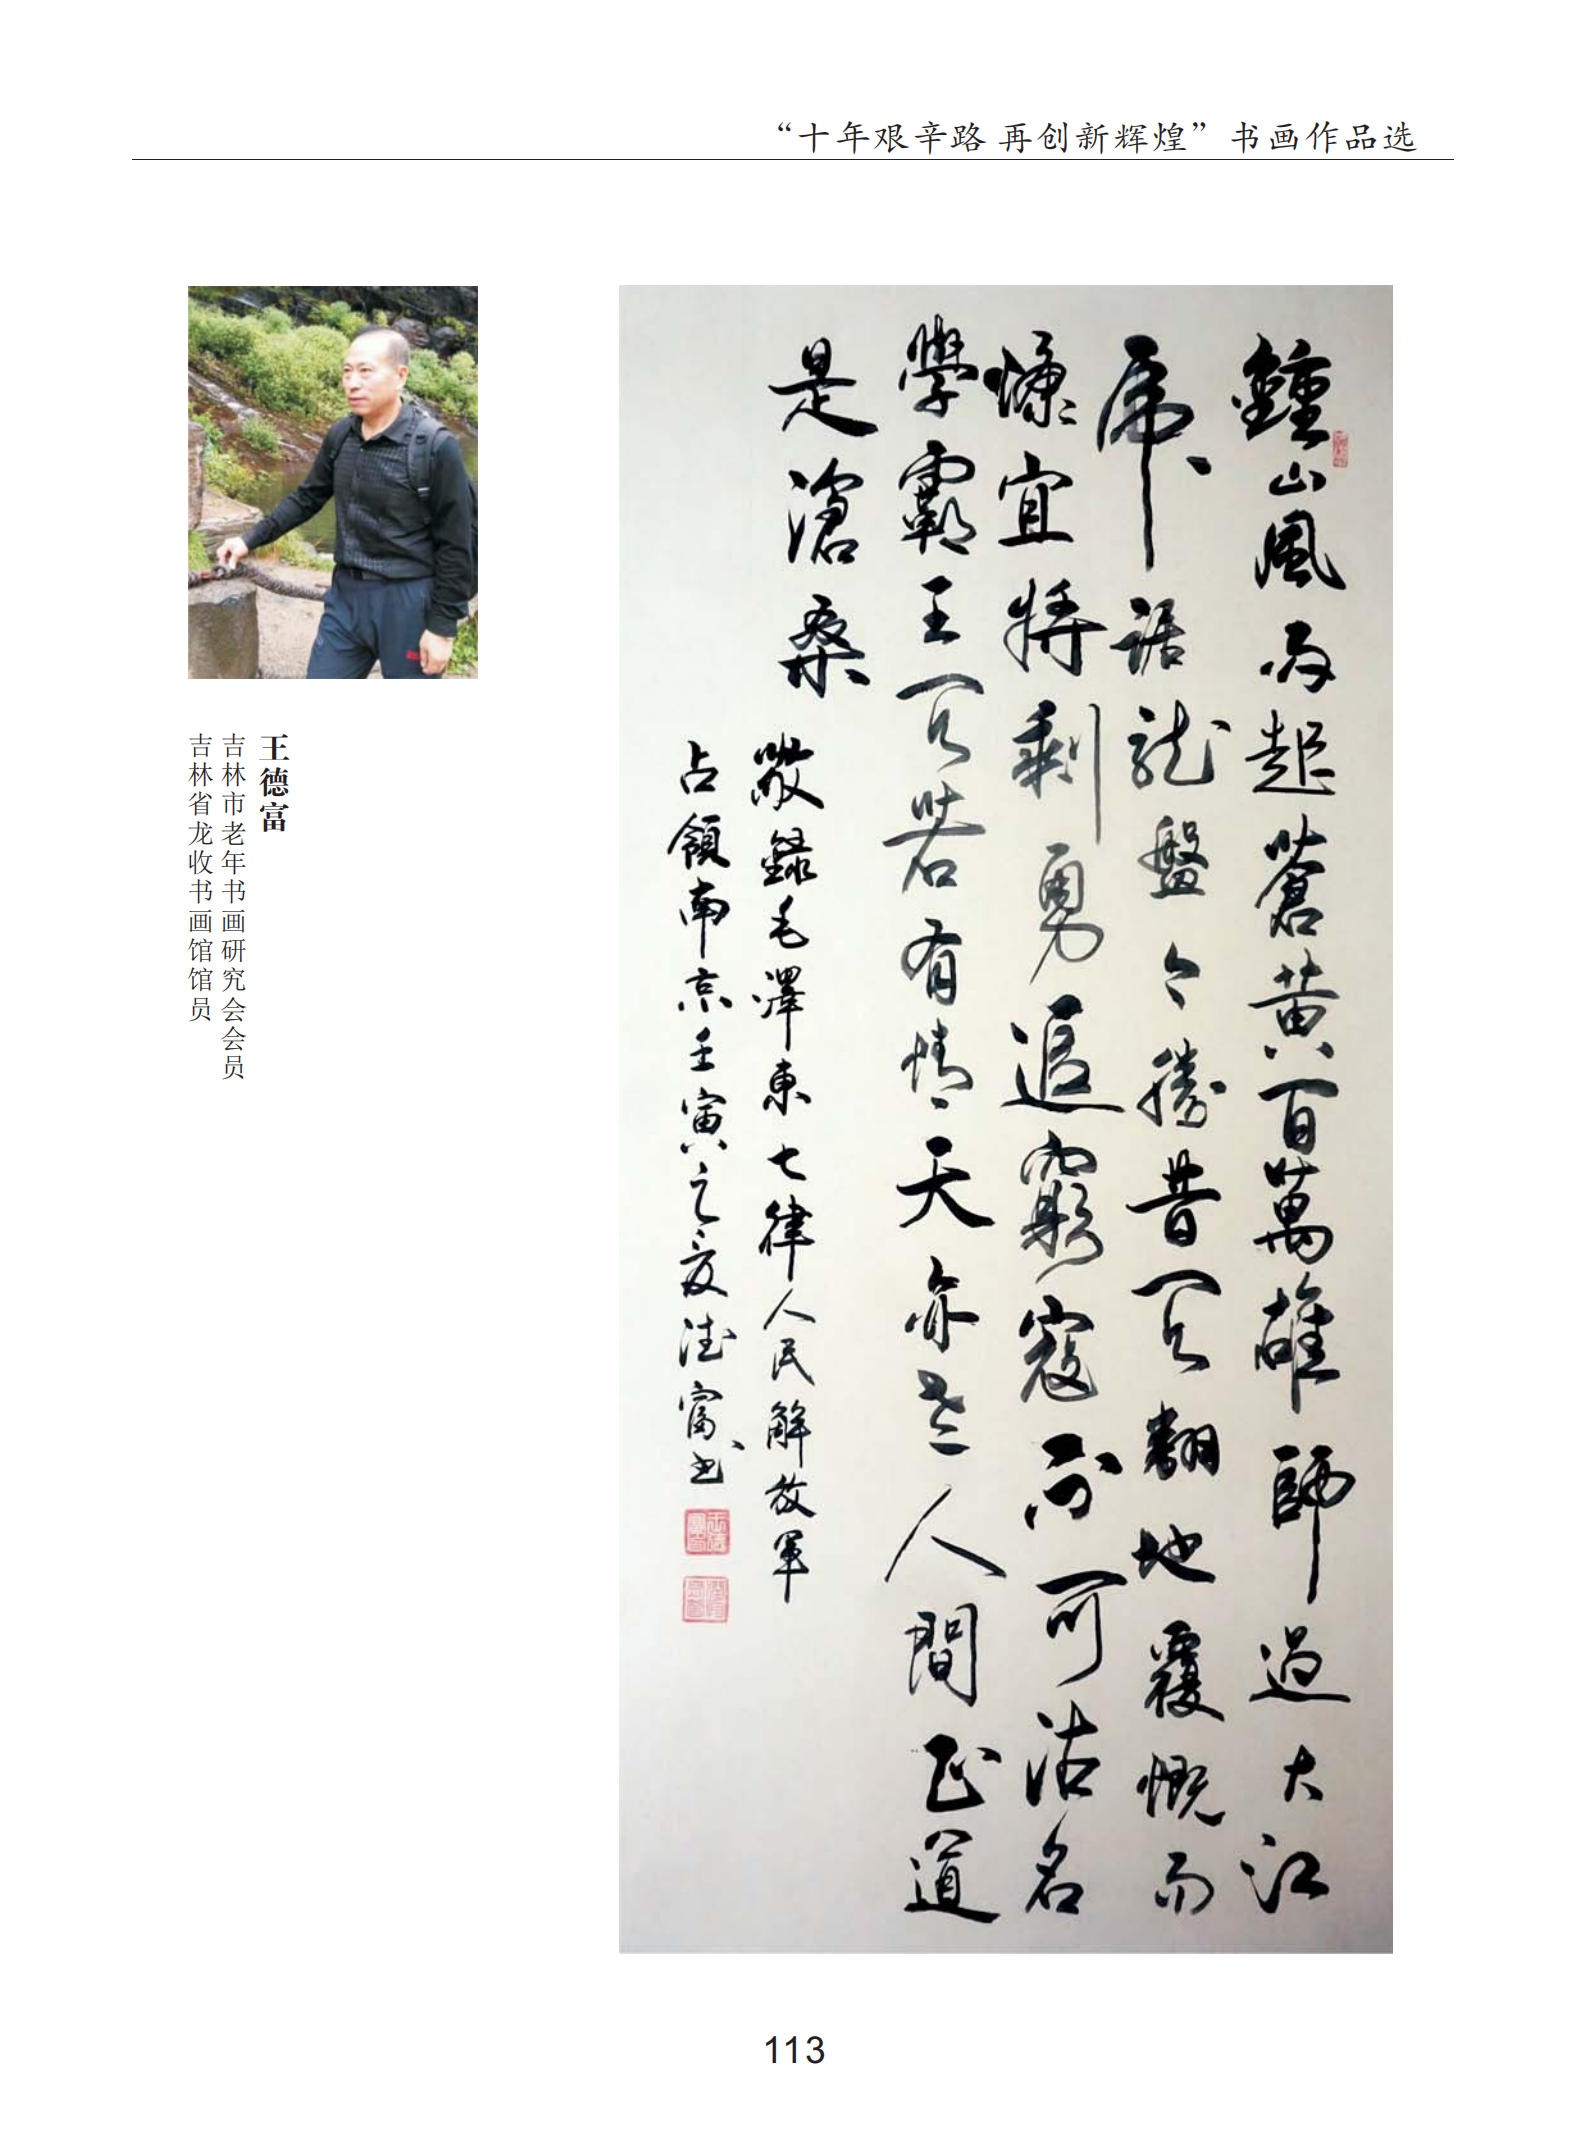 “十年艰辛路 再创新辉煌”书画作品选
鍾山風雨起蒼黃百萬雄師過大江
虎踞龍盤今勝昔天翻地覆慨而
慷宜將剩勇追窮寇不可沽名
學霸王天若有情天亦老人間正道
是滄桑
敬錄毛澤東七律人民解放軍
占領南京壬寅之夏德富书
王德富
吉林市老年书画研究会会员
吉林省龙收书画馆馆员
113